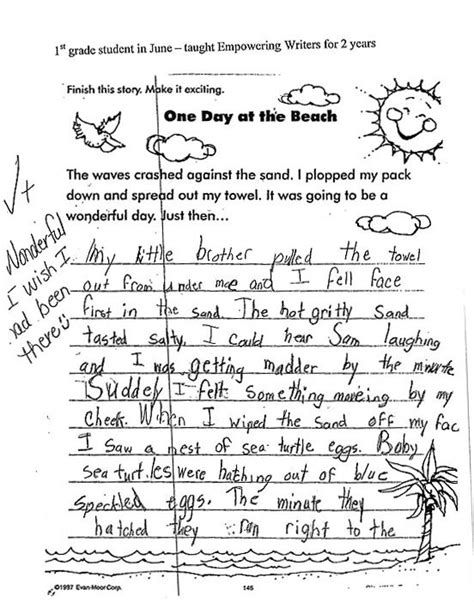 1st grade student in June – taught Empowering Writers for 2 years
Finish this story. Make it exciting.
One Day at the Beach
The waves crashed against the sand. I plopped my pack
down and spread out my towel. It was going to be a
wonderful day. Just then...
√+
Wonderful
I wish I
had been
there
My little brother pulled the towel
out from under mee and I fell face
first in the sand. The hot gritty sand
tasted salty, I could hear Sam laughing
and I was getting madder by the minute
Suddely I felt something moveing by my
cheek. When I wiped the sand off my fac
I saw a nest of sea turtle eggs. Baby
sea turtles were hathing out of blue
speckled eggs. The minute they
hatched they ran right to the
©1997 Evan-Moor Corp.
145